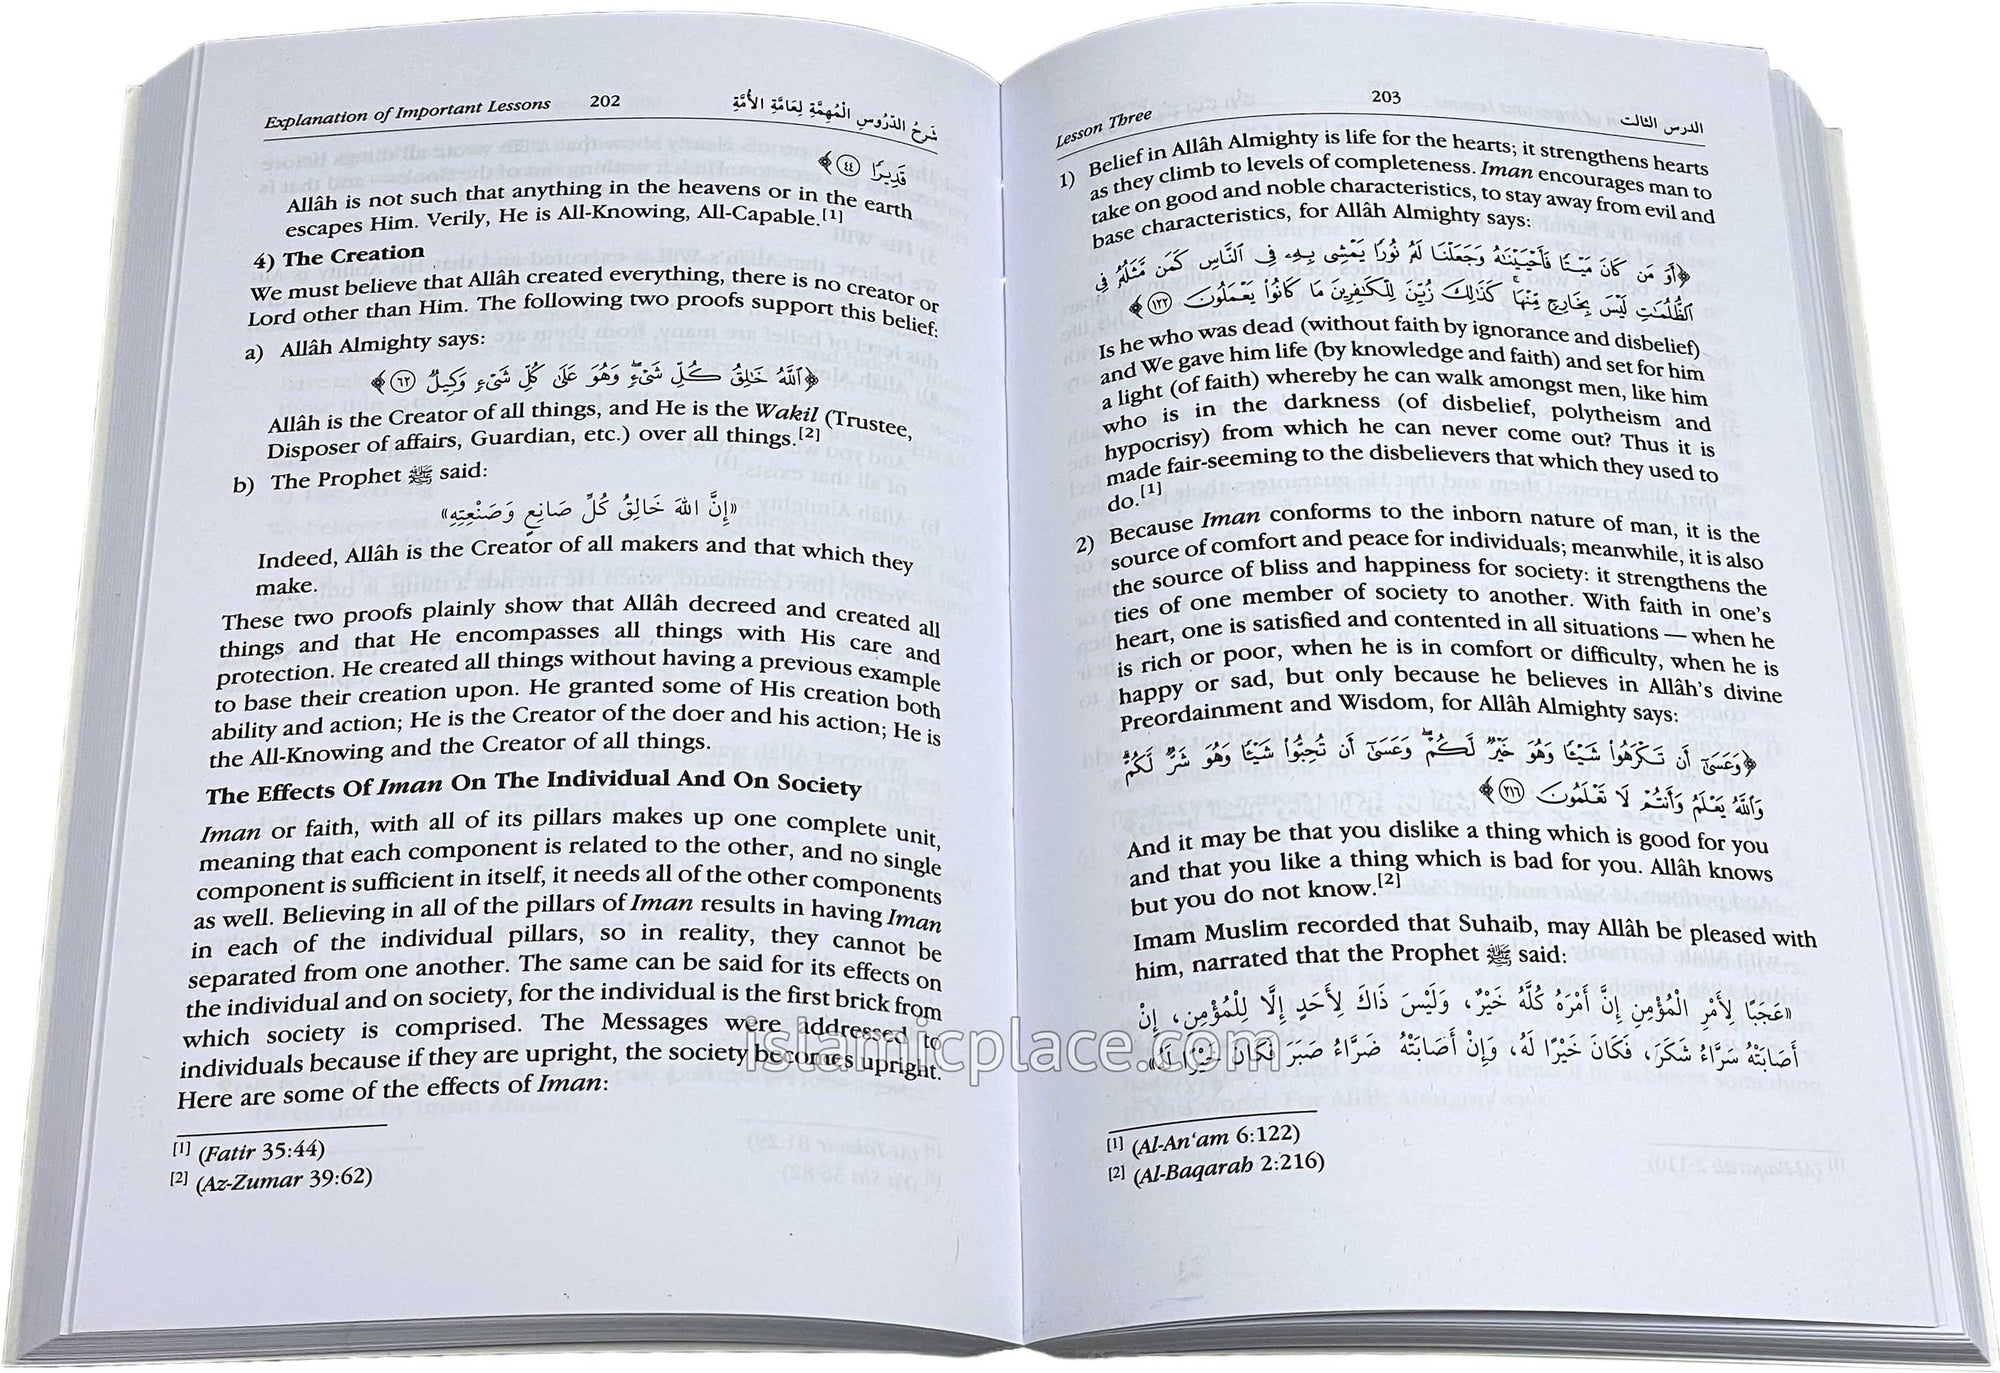 Explanation of Important Lessons 202 شَرحُ الدُّرُوسِ الْمُهِمَّةِ لِعَامَّةِ الأُمَّةِ
قَدِيرًا ﴿٤٤﴾
Allâh is not such that anything in the heavens or in the earth
escapes Him. Verily, He is All-Knowing, All-Capable.[1]
4) The Creation
We must believe that Allâh created everything, there is no creator or
Lord other than Him. The following two proofs support this belief:
a) Allâh Almighty says:
﴿ٱللَّهُ خَٰلِقُ كُلِّ شَىْءٍ ۖ وَهُوَ عَلَىٰ كُلِّ شَىْءٍ وَكِيلٌ ٦٢﴾
Allâh is the Creator of all things, and He is the Wakil (Trustee,
Disposer of affairs, Guardian, etc.) over all things.[2]
b) The Prophet ﷺ said:
«إِنَّ اللهَ خَالِقُ كُلِّ صَانِعٍ وَصَنْعَتِهِ»
Indeed, Allâh is the Creator of all makers and that which they
make.
These two proofs plainly show that Allâh decreed and created all
things and that He encompasses all things with His care and
protection. He created all things without having a previous example
to base their creation upon. He granted some of His creation both
ability and action; He is the Creator of the doer and his action; He is
the All-Knowing and the Creator of all things.
The Effects Of Iman On The Individual And On Society
Iman or faith, with all of its pillars makes up one complete unit,
meaning that each component is related to the other, and no single
component is sufficient in itself, it needs all of the other components
as well. Believing in all of the pillars of Iman results in having Iman
in each of the individual pillars, so in reality, they cannot be
separated from one another. The same can be said for its effects on
the individual and on society, for the individual is the first brick from
which society is comprised. The Messages were addressed to
individuals because if they are upright, the society becomes upright.
Here are some of the effects of Iman:
[1] (Fatir 35:44)
[2] (Az-Zumar 39:62)
Lesson Three 203 الدرس الثالث
1) Belief in Allâh Almighty is life for the hearts; it strengthens hearts
as they climb to levels of completeness. Iman encourages man to
take on good and noble characteristics, to stay away from evil and
base characteristics, for Allâh Almighty says:
﴿أَوَ مَن كَانَ مَيْتًا فَأَحْيَيْنَٰهُ وَجَعَلْنَا لَهُۥ نُورًا يَمْشِى بِهِۦ فِى ٱلنَّاسِ كَمَن مَّثَلُهُۥ فِى
ٱلظُّلُمَٰتِ لَيْسَ بِخَارِجٍ مِّنْهَا ۚ كَذَٰلِكَ زُيِّنَ لِلْكَٰفِرِينَ مَا كَانُوا۟ يَعْمَلُونَ ١٢٢﴾
Is he who was dead (without faith by ignorance and disbelief)
and We gave him life (by knowledge and faith) and set for him
a light (of faith) whereby he can walk amongst men, like him
who is in the darkness (of disbelief, polytheism and
hypocrisy) from which he can never come out? Thus it is
made fair-seeming to the disbelievers that which they used to
do.[1]
2) Because Iman conforms to the inborn nature of man, it is the
source of comfort and peace for individuals; meanwhile, it is also
the source of bliss and happiness for society: it strengthens the
ties of one member of society to another. With faith in one's
heart, one is satisfied and contented in all situations — when he
is rich or poor, when he is in comfort or difficulty, when he is
happy or sad, but only because he believes in Allâh's divine
Preordainment and Wisdom, for Allâh Almighty says:
﴿وَعَسَىٰٓ أَن تَكْرَهُوا۟ شَيْـًٔا وَهُوَ خَيْرٌ لَّكُمْ ۖ وَعَسَىٰٓ أَن تُحِبُّوا۟ شَيْـًٔا وَهُوَ شَرٌّ لَّكُمْ ۗ
وَٱللَّهُ يَعْلَمُ وَأَنتُمْ لَا تَعْلَمُونَ ٢١٦﴾
And it may be that you dislike a thing which is good for you
and that you like a thing which is bad for you. Allâh knows
but you do not know.[2]
Imam Muslim recorded that Suhaib, may Allâh be pleased with
him, narrated that the Prophet ﷺ said:
«عَجَبًا لِأَمْرِ الْمُؤْمِنِ إِنَّ أَمْرَهُ كُلَّهُ خَيْرٌ، وَلَيْسَ ذَاكَ لِأَحَدٍ إِلَّا لِلْمُؤْمِنِ، إِنْ
أَصَابَتْهُ سَرَّاءُ شَكَرَ، فَكَانَ خَيْرًا لَهُ، وَإِنْ أَصَابَتْهُ ضَرَّاءُ صَبَرَ فَكَانَ خَيْرًا لَهُ»
[1] (Al-An'am 6:122)
[2] (Al-Baqarah 2:216)
islamicplace.com